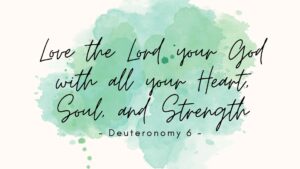 Love the Lord your God
with all your Heart,
Soul, and Strength
- Deuteronomy 6 -